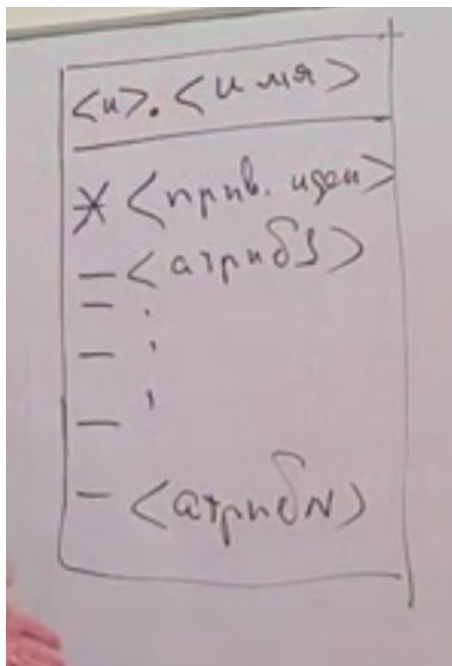 <и>. <имя>
* <прив. иден>
– <атриб1>
–
–
–
– <атрибN>